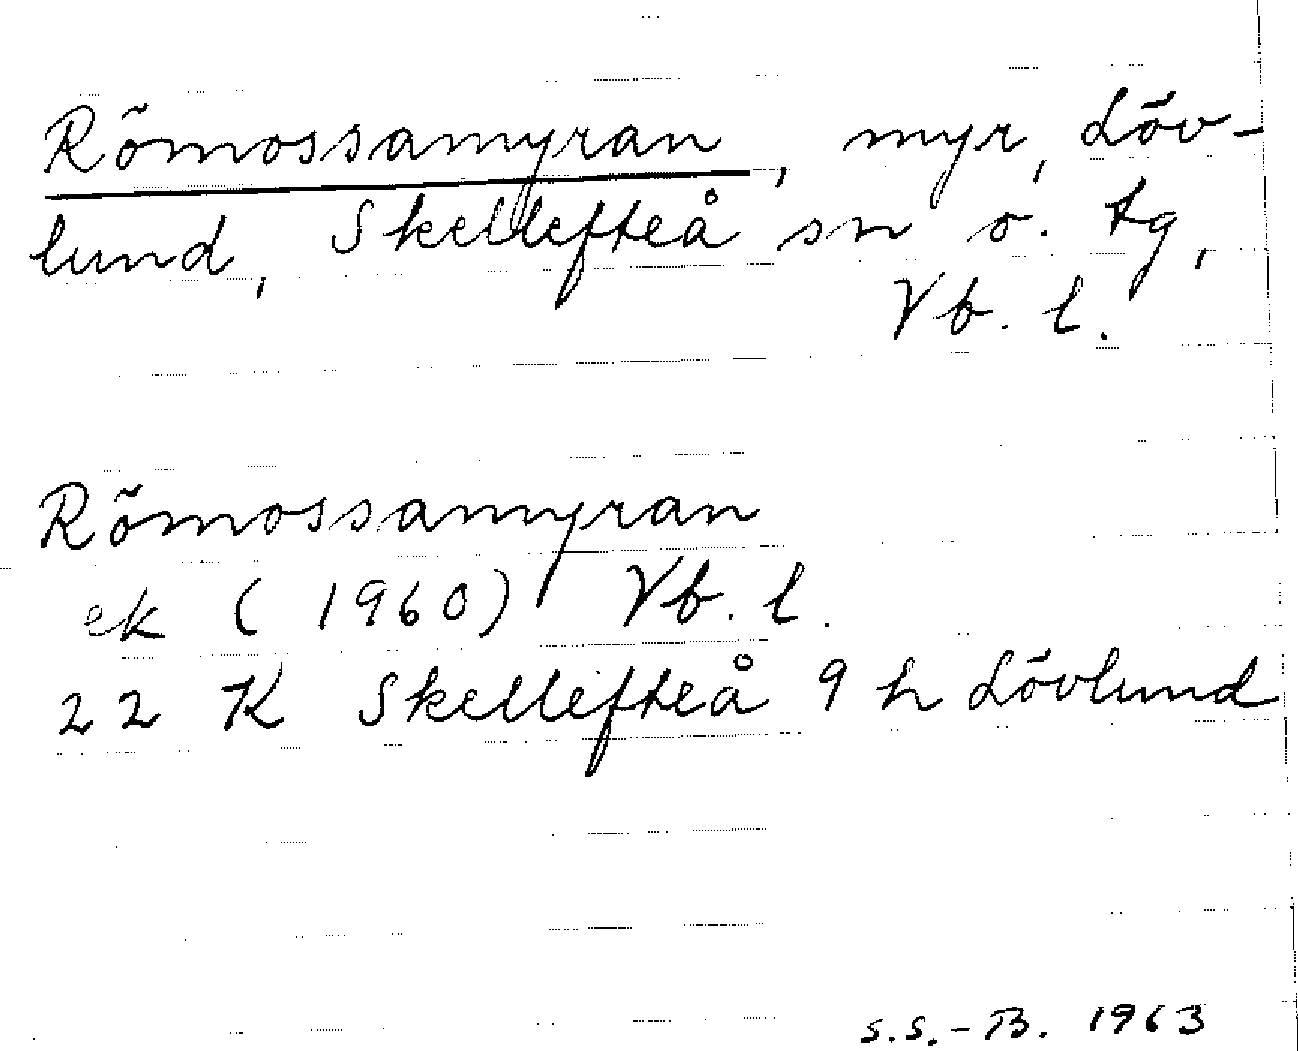 Römossamyran, myr, Löv-
lund, Skellefteå sn o. tg,
Vb. l.
Römossamyran
ek (1960) Vb. l.
22 K Skellefteå 9 h Lövlund
S.S.-B. 1963